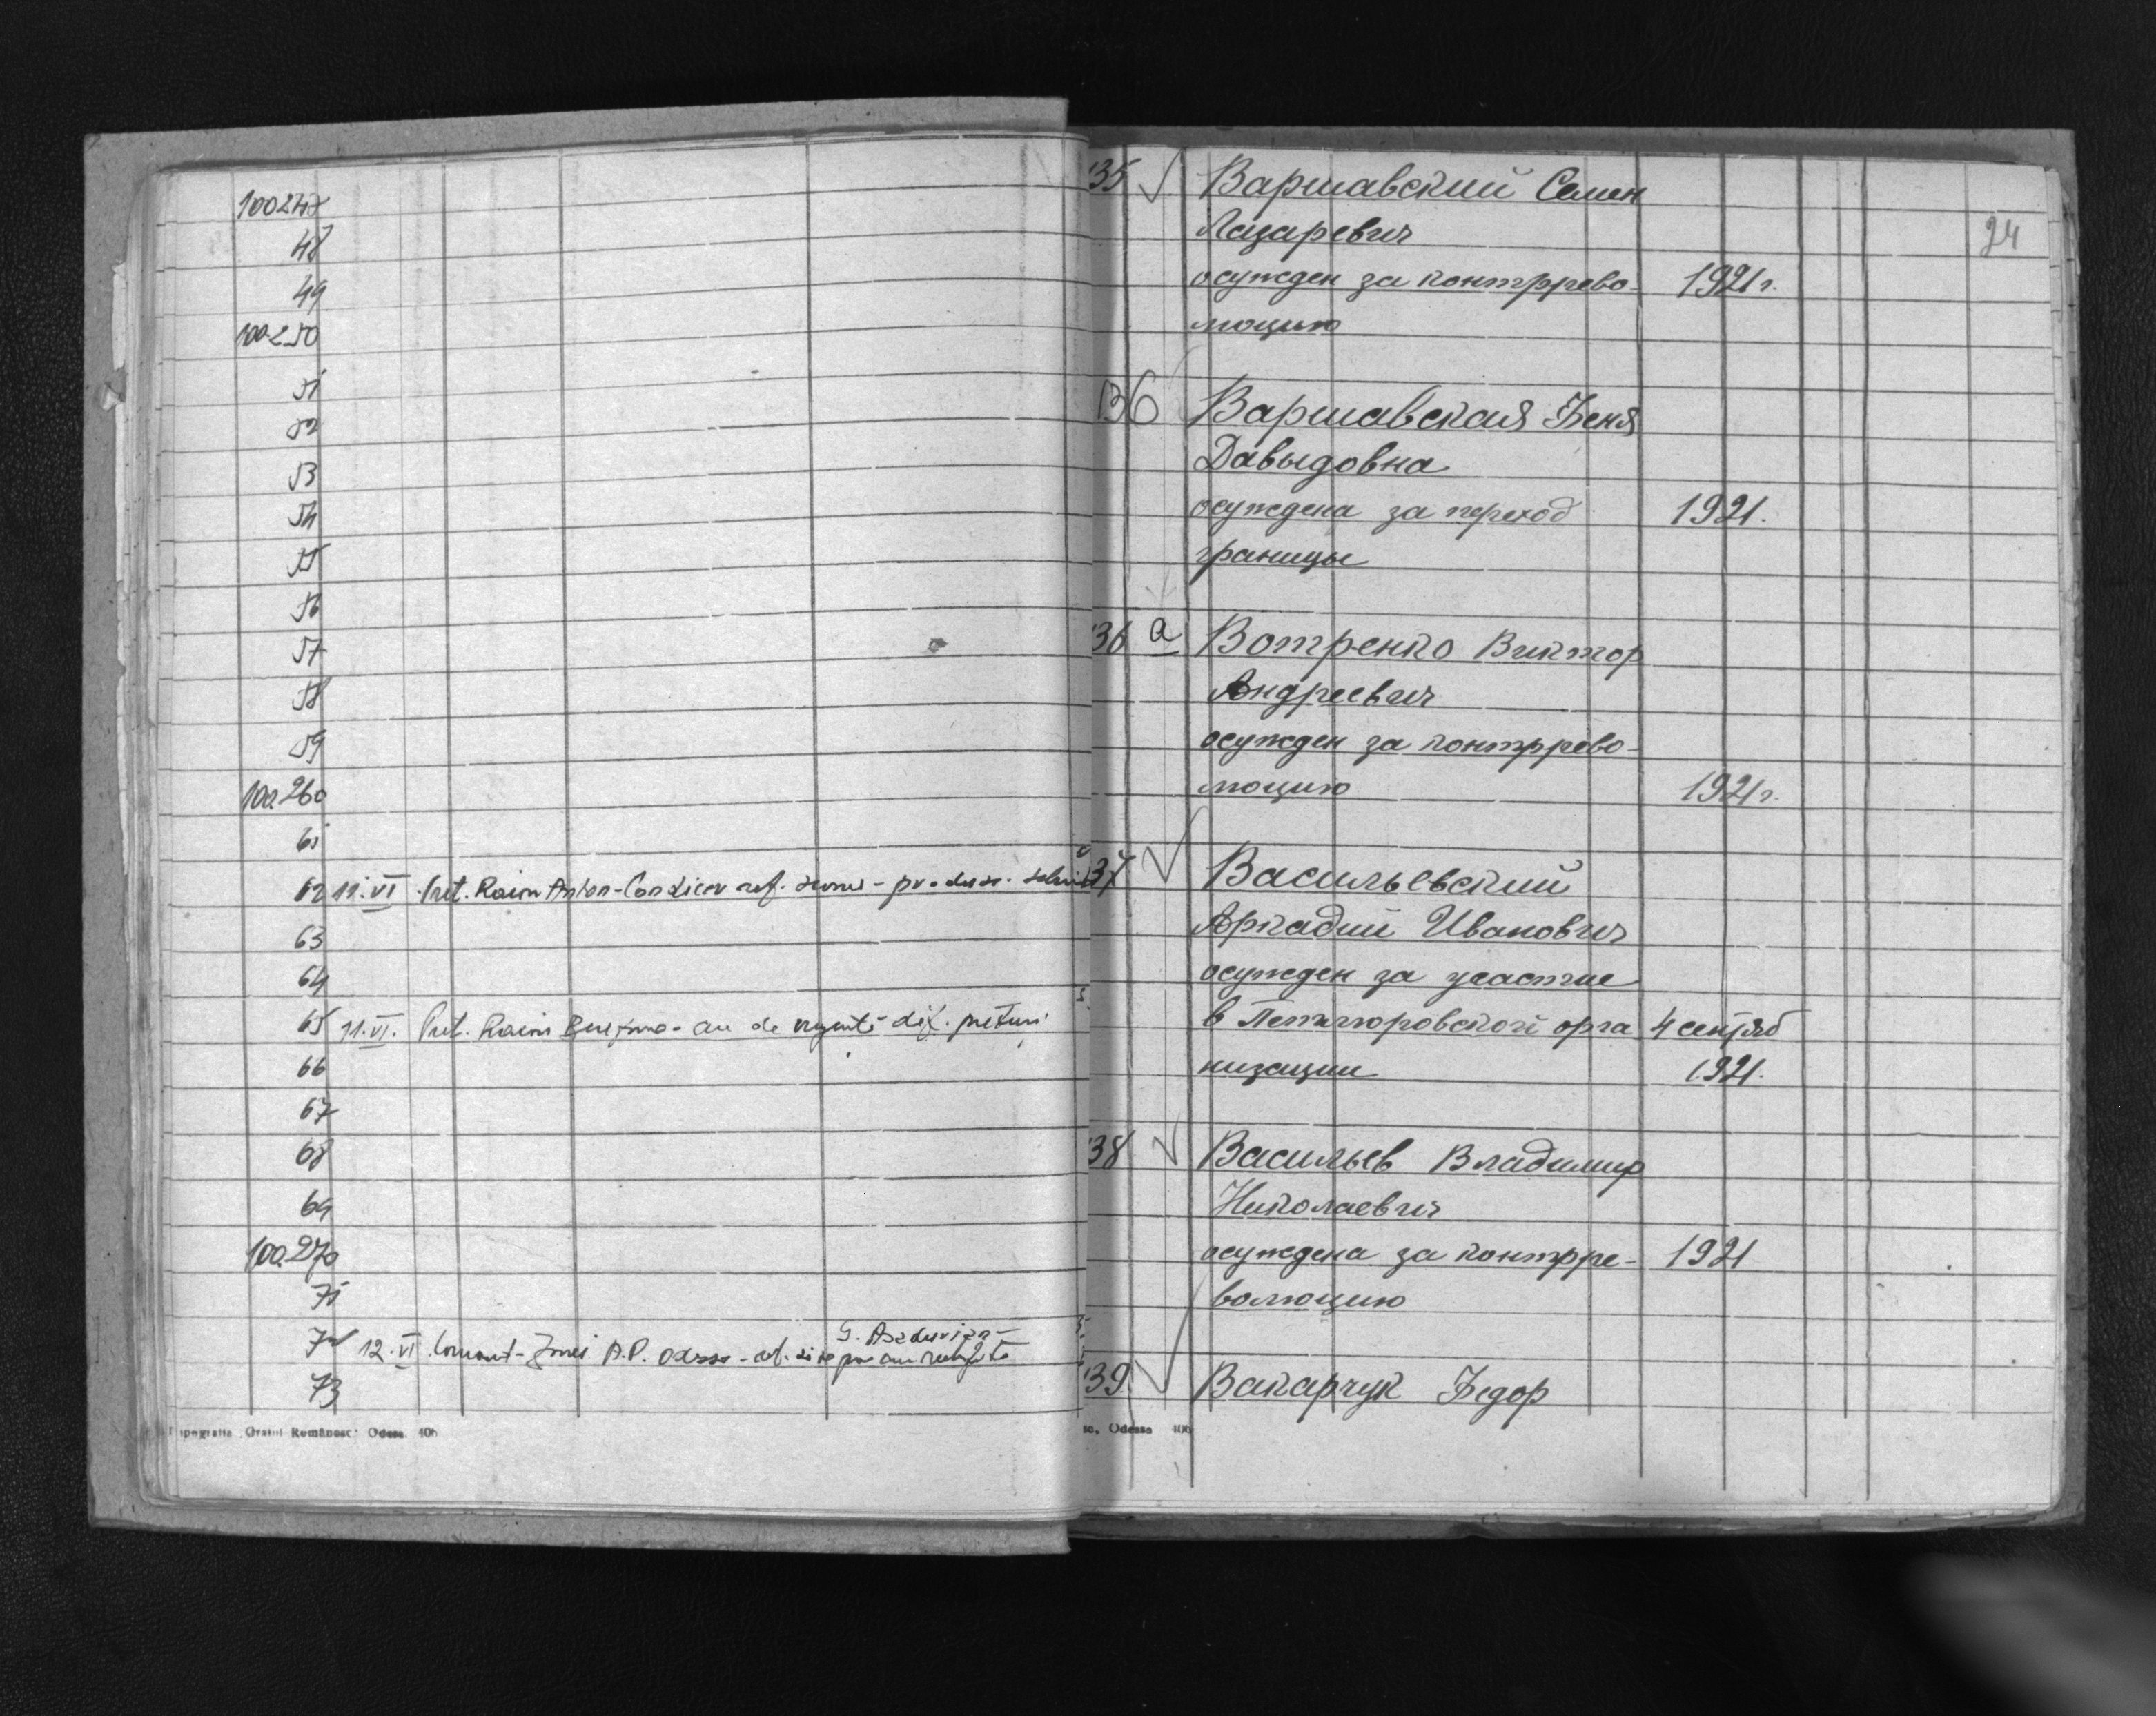 100247
48
49
100250
51
52
53
54
55
56
57
58
59
100.260
61
62 11.VI Pret. Raion Anton-Codincu ref.
63
64
65 11.VI. Pret. Raion au de dif. preturi
66
67
68
69
100.270
71
72 12.VI A.P. Odessa
73
Tipografia „Graiul Românesc" Odesa. 406
24
135 Варшавский Семен
Лазаревич
осужден за контррево- 1921 г.
люцию
136 Варшавская Беня
Давыдовна
осуждена за переход 1921.
границы
136 а Вотренко Виктор
Андреевич
осужден за контррево-
люцию 1921 г.
137 Васильевский
Аркадий Иванович
осужден за участие
в Петлюровской орга 4 сентяб
низации 1921.
138 Васильев Владимир
Николаевич
осуждена за контрре- 1921
волюцию
139. Вакарчук Федор
sc, Odessa 406